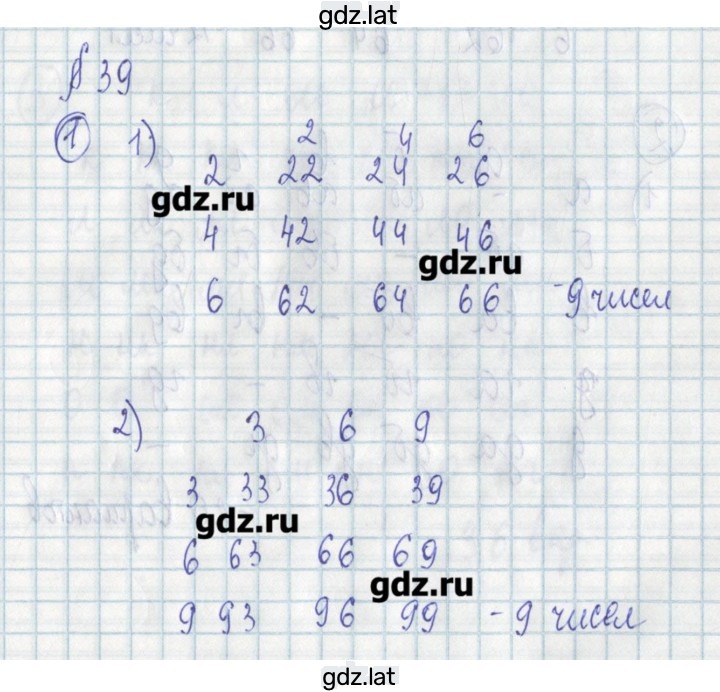 gdz.lat
§ 39
① 1) 2 4 6
2 22 24 26
gdz.ru
4 42 44 46
gdz.ru
6 62 64 66 - 9 чисел
2) 3 6 9
3 33 36 39
gdz.ru
6 63 66 69
gdz.ru
9 93 96 99 - 9 чисел
gdz.lat